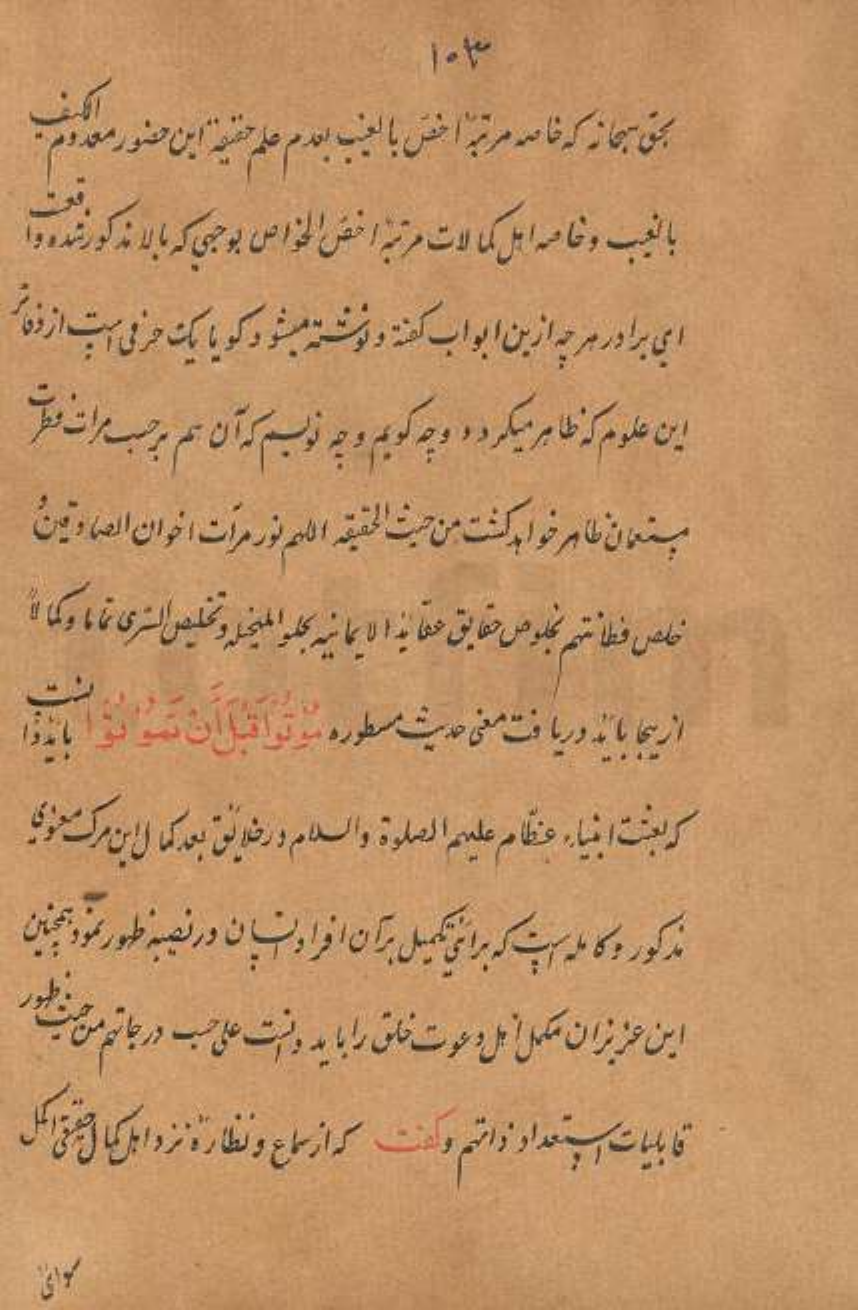 ۱۰۳
بحق سبحانه که خاصه مرتبهٔ اخصّ بالغیب بعدم علم حقیقة این حضور معدوم الکیف
بالغیب و خاصه اهل کمالات مرتبهٔ اخصّ الخواص بوجهی که بالا مذکور شده واقعت
ای برادر هر چه ازین ابواب کفته و نوشته میشود کویا یک حرفی است از دفاتر
این علوم که ظاهر میکردد و چه کویم و چه نویسم که آن هم برحسب مرات فطرت
مستمعان ظاهر خواهد کشت من حیث الحقیقه اللهم نور مرآت اخوان الصادقین و
خلص فطانتهم بخلوص حقایق عقاید الایمانیه بجلو المتخیله و تخلیص السری تماما و کمالاً
ازینجا باید دریافت معنی حدیث مسطوره مُوتُوا قَبْلَ أَنْ تَمُوتُوْا باید دانست
که بعثت انبیاء عظّام علیهم الصلوة والسلام در خلایق بعد کمال این مرک معنوی
مذکور و کامله است که برائی تکمیل بر آن افراد انسان در نصیبه ظهور نمود همچنین
این عزیزان مکمل اهل دعوت خلق را باید دانست علی حسب درجاتهم من حیث ظهور
قابلیات استعداد ذاتهم و کفت که از سماع و نظارهٔ نزد اهل کمال حقیقی اکمل